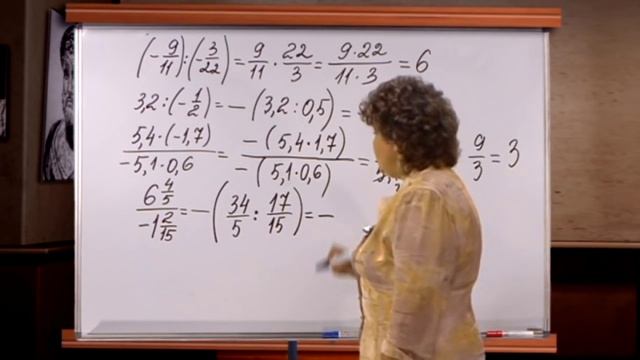 (-9/11):(-3/22)=9/11·22/3=9·22/11·3=6
3,2:(-1/2)=-(3,2:0,5)=
5,4·(-1,7)/-5,1·0,6=-(5,4·1,7)/-(5,1·0,6)= 9/3=3
6 4/5/-1 2/15=-(34/5:17/15)=-